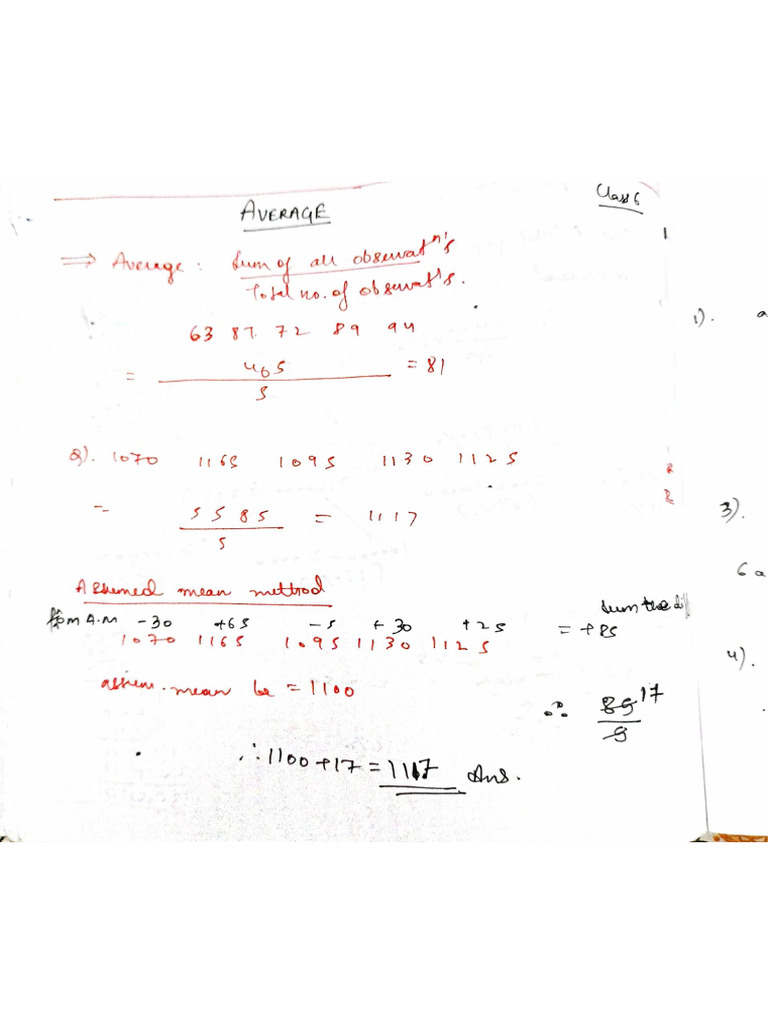 Class 6
AVERAGE
⇒ Average : Sum of all observatn's
Total no. of observat's.
63 87. 72 89 94
= 465 = 81
5
Q). 1070 1165 1095 1130 1125
= 5585 = 1117
5
Assumed mean method
from A.M -30 +65 -5 +30 +25 = +85
sum the d
1070 1165 1095 1130 1125
assum. mean be = 1100
∴ 85 17
5
∴ 1100+17 = 1117 Ans.
1). a
3).
6 a
4).